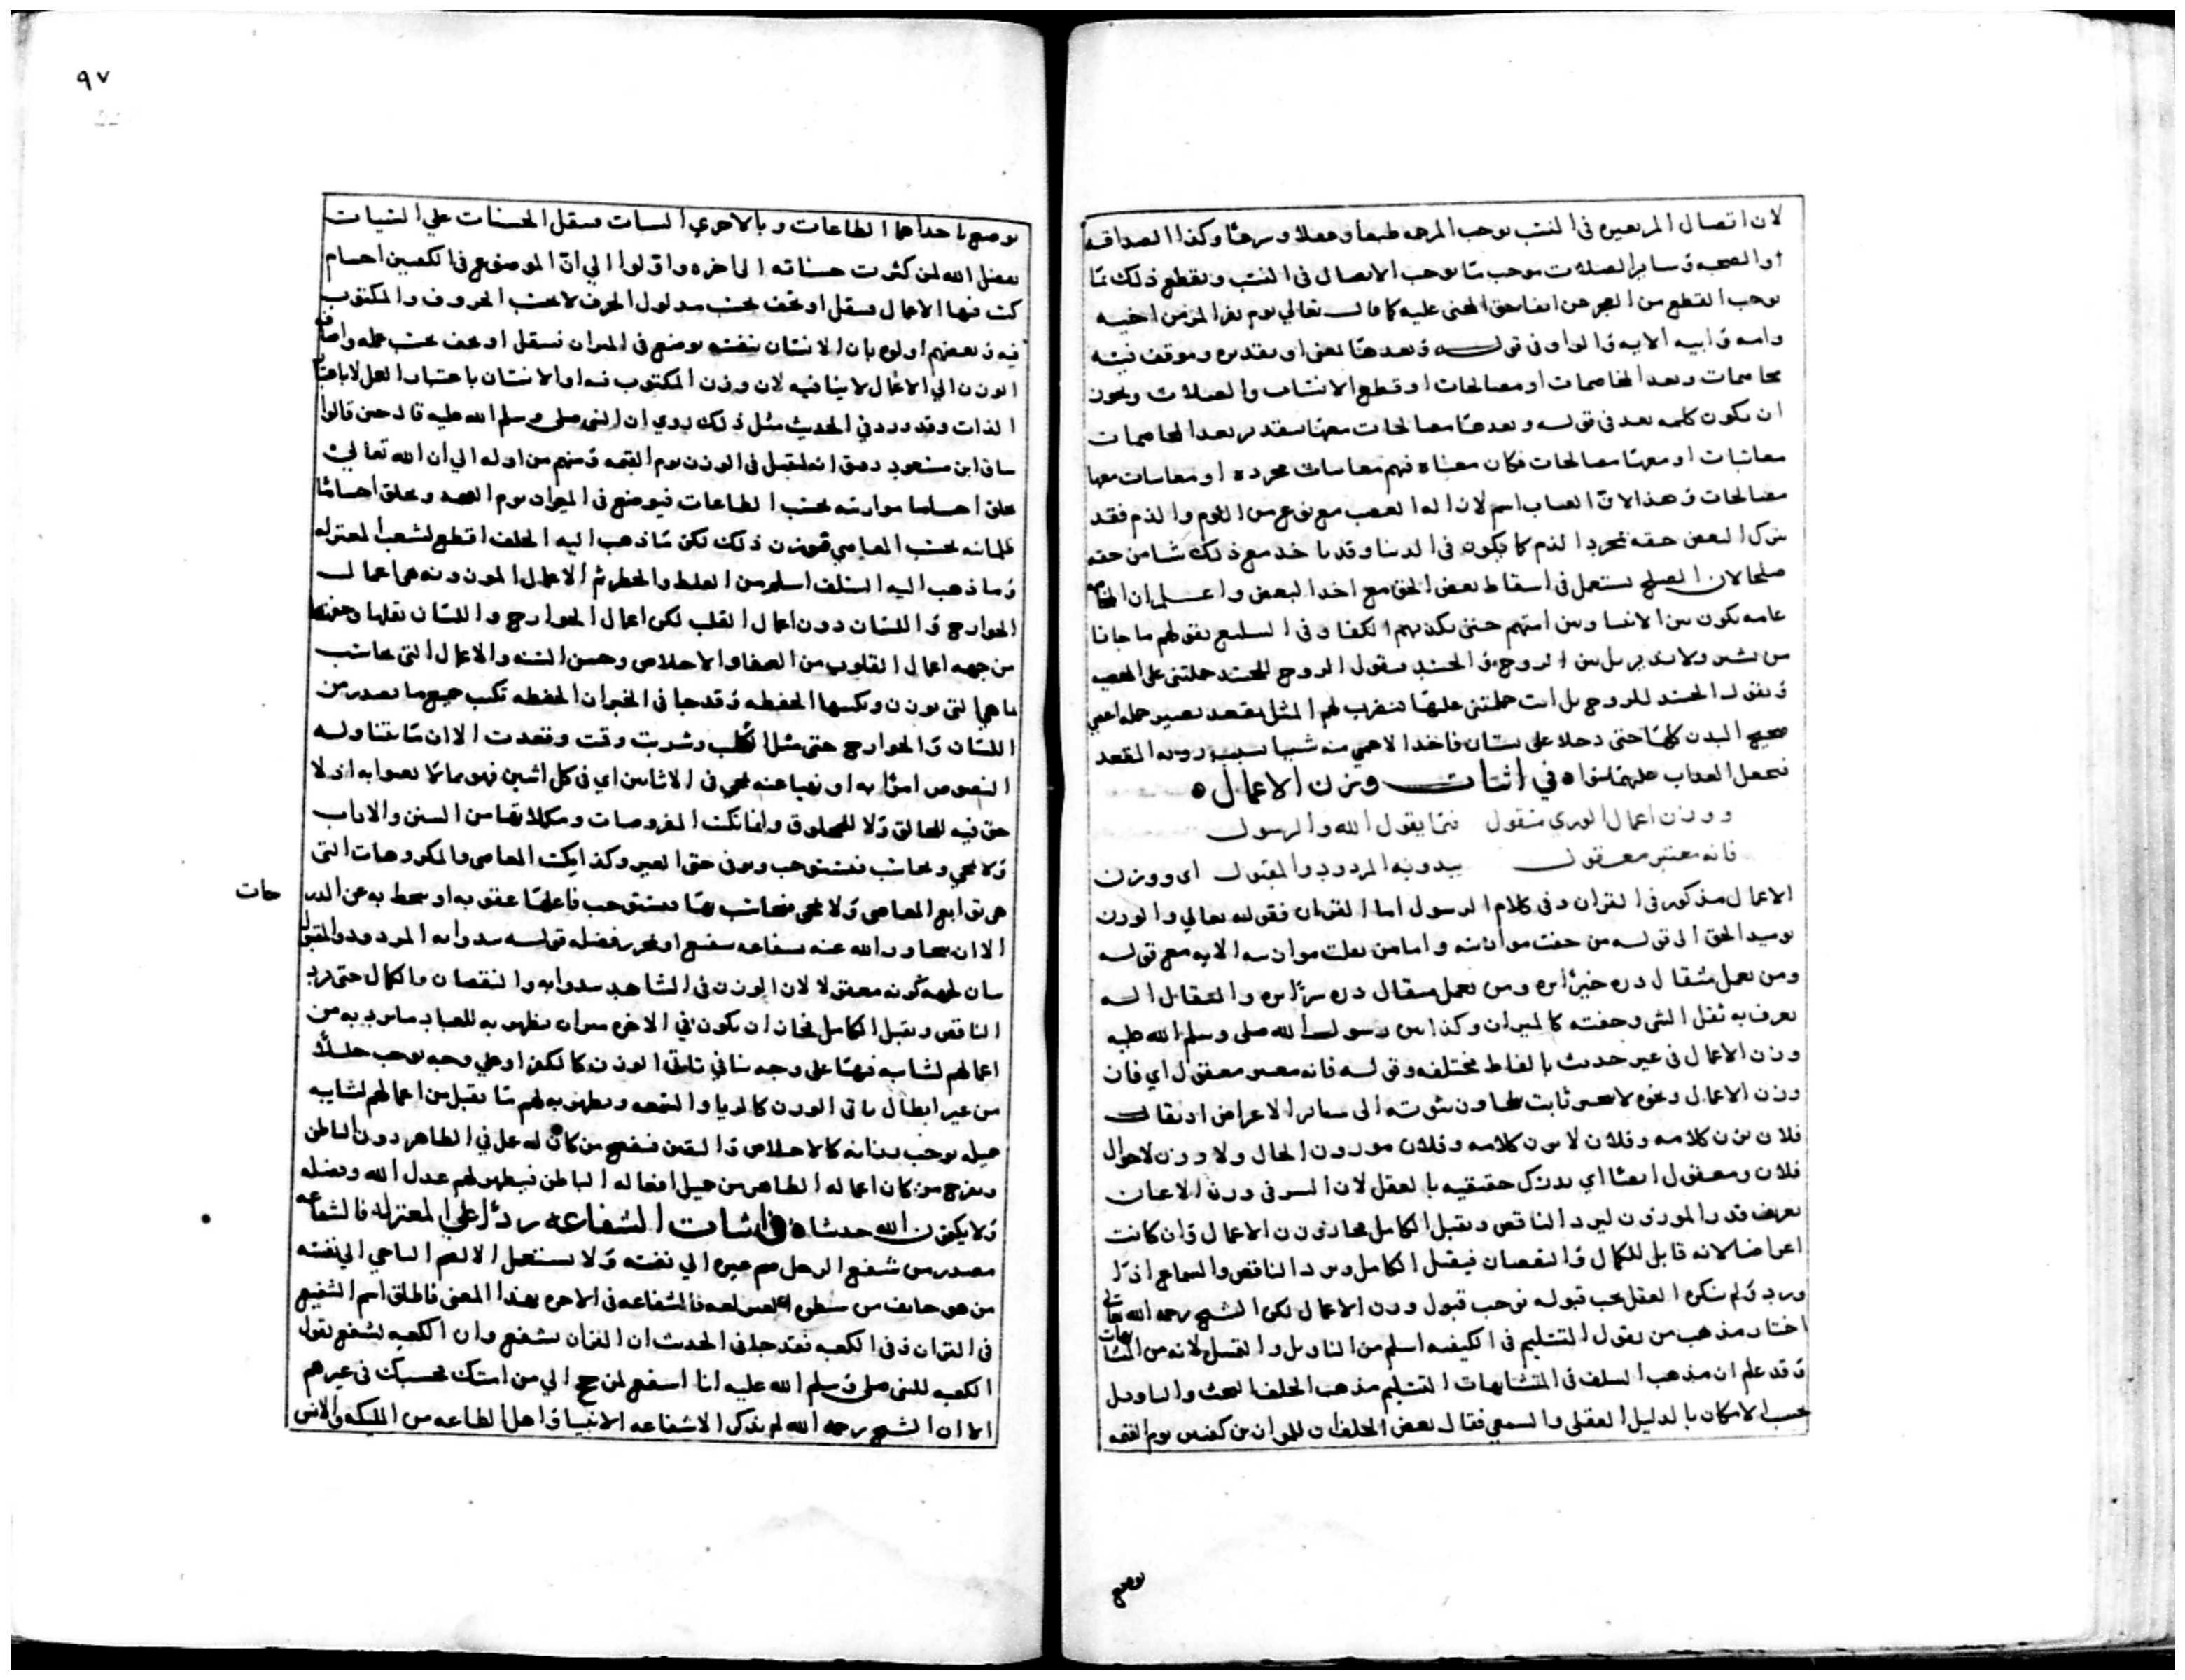 لان اتصال المرء بغيره في النسب يوجب المرحمه طبعا وعقلا وشرعا وكذا الصداقه
او الصحبه وساير الصلات موجب ما يوجب الاتصال في النسب ويقطع ذلك بما
يوجب القطع من العجز عن ايفا حق المجني عليه كما قال تعالى يوم يفر المرء من اخيه
وامه وابيه الايه والواو في قوله وبعدها بمعنى او بتقديره وموقف فيه
مخاصمات وبعد المخاصمات او مصالحات او قطع الانساب والصلات ويجوز
ان يكون كلمه بعد في قوله وبعدها مصالحات معها بتقدير بعد المخاصمات
معاتبات او معها مصالحات فكان معناه فيهم معاتبات مجرده او معاتبات معها
مصالحات وهذا لان العتاب اسم لازاله الغضب مع نوع من اللوم والذم فقد
يترك البعض حقه بمجرد الذم كما يكون في الدنيا وقد ياخذ مع ذلك شيا من حقه
صلحا لان الصلح يستعمل في اسقاط بعض الحق مع اخذ البعض واعلم ان المخاصمه
عامه يكون بين الانبيا وبين امتهم حتى يكذبهم الكفار في التبليغ بقولهم ما جانا
من بشير ولا نذير بل بين الروح والجسد فيقول الروح للجسد حملتني على المعصيه
ويقول الجسد للروح بل انت حملتني عليها فيضرب لهم المثل بمقعد بصير حمله اعمى
صحيح البدن كلها حتى دخلا على بستان فاخذ الاعمى منه شيا بسبب رويه المقعد
فيجعل العذاب عليهما سوا ه في اثبات وزن الاعمال ه
ووزن اعمال الورى منقول فيما يقول الله والرسول
فانه معتبر معقول يبدو به المردود والمقبول اى ووزن
الاعمال مذكور في القران وفي كلام الرسول اما القران فقوله تعالى والوزن
يوميد الحق الى قوله من خفت موازينه واما من ثقلت موازينه الايه مع قوله
ومن يعمل مثقال ذره خيرا يره ومن يعمل مثقال ذره شرا يره والمثقال اله
يعرف به ثقل الشى وخفته كالميزان وكذا بين رسول الله صلى وسلم الله عليه
وزن الاعمال في غير حديث بالفاظ مختلفه وقوله فانه معتبر معقول اي فان
وزن الاعمال ونحوه لا ثابت ثبوته الى ساير الاعراض اذ يقال
فلان يزن كلامه وفلان لا يزن كلامه وفلان موزون الحال ولا وزن لاحوال
فلان ومعقول ايضا اي يدرك حقيقيه بالعقل لان السر في وزن الاعيان
تعريف قدر الموزون ليرد الناقص ويقبل الكامل فجاز وزن الاعمال وان كانت
اعراضا لانه قابل للكمال والنقصان فيقبل الكامل ويرد الناقص والسماع اذا
ورد ولم ينكره العقل يجب قبوله فوجب قبول وزن الاعمال لكن الشيخ رحمه الله تعالى
اختار مذهب من يقول التسليم في الكيفيه اسلم من التاويل والتمثيل لانه من المتشابهات
وقد علم ان مذهب السلف في المتشابهات التسليم مذهب الخلف البحث والتاويل
بحسب الامكان بالدليل العقلى والسمعي فقال بعض الخلف ان للميزان كفتين يوم القيمه
يوضع
٩٧
يوضع باحداهما الطاعات وبالاخرى السيات فيثقل الحسنات على السيات
بفضل الله لمن كثرت حسناته الى اخره واولوا الي ان الموضوع في الكفتين اجسام
كتب فيها الاعمال فيثقل او يخف بحسب مدلول الحرف لا بحسب الحروف والمكتوب
فيه وبعضهم اوله بان الانسان بنفسه يوضع في الميزان فيثقل او يخف بحسب عمله واضافه
الوزن الي الاعمال لا ينافيه لان وزن المكتوب فيه او الانسان باعتبار العمل لا باعتبار
الذات وقد ورد في الحديث مثل ذلك روي ان النبى صلى وسلم الله عليه قال حين قالوا
ساق ابن مسعود دقيق انه لثقيل في الوزن يوم القيمه ومنهم من اوله الي ان الله تعالى
يخلق اجساما موازنه بحسب الطاعات فيوضع في الميزان يوم القيمه ويخلق اجساما
ظلمانيه بحسب المعاصي فيوزن ذلك لكن ما ذهب اليه الخلف اقطع لشعب المعتزله
وما ذهب اليه السلف اسلم من الغلط والخطر ثم الاعمال الموزونه هي اعمال
الجوارح واللسان دون اعمال القلب لكن اعمال الجوارح واللسان ثقلها وخفتها
من جهه اعمال القلوب من الصفا والاخلاص وحسن النيه والاعمال التى يحاسب
ما هي التى يوزن ويكتبها الحفظه وقد جا في الخبر ان الحفظه تكتب جميع ما يصدر من
اللسان والجوارح حتى مثل اكلت وشربت وقمت وقعدت الا ان ما يتناوله
النصوص امرا به او نهيا عنه يمحي في الاثنين اي في كل اثنين فهو مما لا يعبا به اذ لا
حق فيه للخالق ولا للمخلوق وانما تكتب المفروضات ومكملاتها من السنن والاداب
ولا يمحي ويحاسب فيستوجب ويوفى حق الغير وكذا يكتب المعاصى والمكروهات التى
هى توابع المعاصى ولا يمحى فيحاسب بها فيستوجب فاعلها عقوبه او يحط به عن الدر حات
الا ان يتجاوز الله عنه بشفاعه شفيع او بمجرد فضله قوله يبدوا به المردود والمقبول
بيان لجهه كونه معقولا لان الوزن في الشاهد يبدوا به النقصان والكمال حتى يرد
الناقص ويقبل الكامل فجاز ان يكون في الاخره ميزان يظهر به للعباد ما يرد به من
اعمالهم لشايبه فيها على وجه ينافي الوزن كالكفر او على وجه يوجب خللا
من غير ابطال الوزن كالريا والسمعه ويظهر به لهم ما يقبل من اعمالهم لشايبه
كالاخلاص واليقين فيفضح من كان له عمل في الظاهر دون الباطن
ويفرح من كان اعماله الظاهر من جميل افعاله الباطن فيظهر لهم عدل الله وفضله
ولا يكتمون الله حديثا ه في اثبات الشفاعه ردا على المعتزله فالشفاعه
مصدر من شفع الرجل غيره الي نفسه ولا يستعمل الا لضم الناجي الي نفسه
من هو خايف من فالشفاعه في الاخره بهذا المعنى فاطلق اسم الشفيع
في القران وفي الكعبه فقد جا في الحديث ان القران يشفع وان الكعبه تشفع تقول
الكعبه للنبى صلى وسلم الله عليه انا اشفع لمن حج الي من امتك فحسبك في غيرهم
الا ان الشيخ رحمه الله لم يذكر الا شفاعه الانبيا واهل الطاعه من المليكه والانس